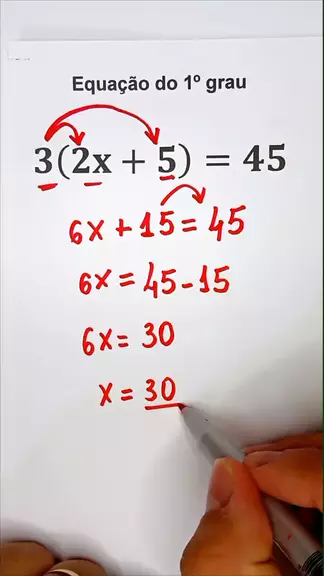 Equação do 1º grau
3(2x + 5) = 45
6x + 15 = 45
6x = 45 - 15
6x = 30
x = 30